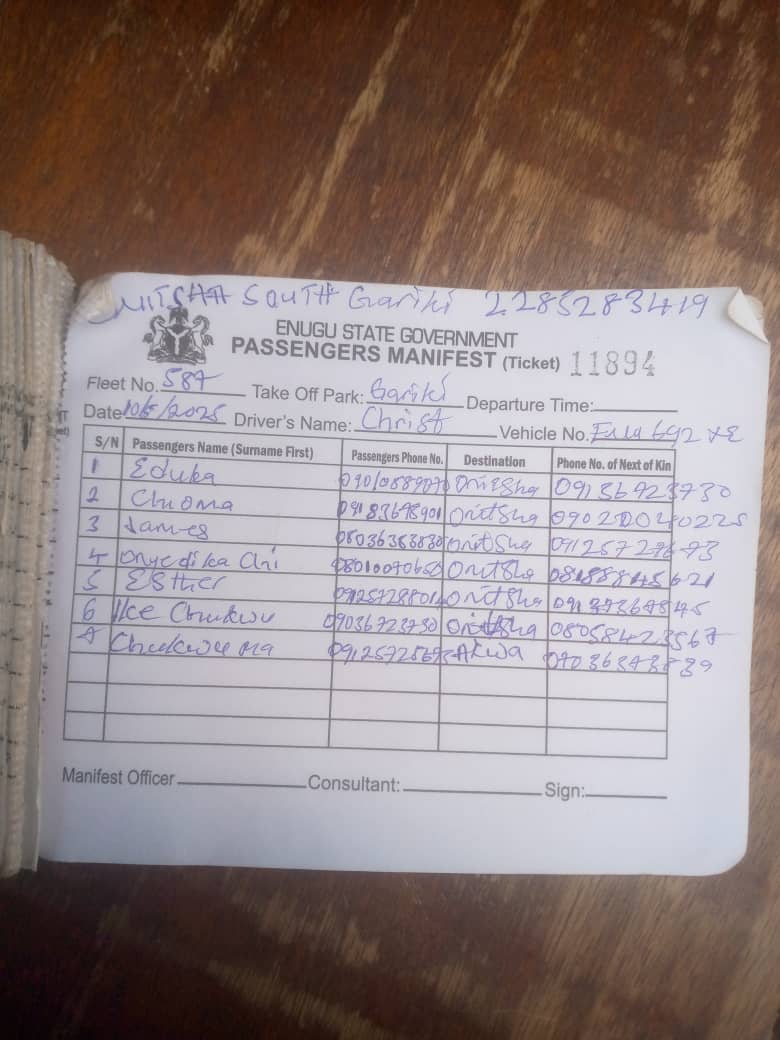 SOUTH Gariki 2285283419
ENUGU STATE GOVERNMENT
PASSENGERS MANIFEST (Ticket) 11894
Fleet No. 587 Take Off Park: Gariki Departure Time:
Date 10/5/2025 Driver's Name: Christ Vehicle No. 692 XE
S/N Passengers Name (Surname First) Passengers Phone No. Destination Phone No. of Next of Kin
1 Eduka Onitsha 09136723730
2 Chioma 09183678901 Onitsha 09020040225
3 James 08036383830 Onitsha
4 Onyedika Chi 08010070650 Onitsha
5 Esther Onitsha
6 Ike Chukwu 09036723730 Onitsha 08058423567
7 Chukwuma Akwa
Manifest Officer Consultant: Sign: